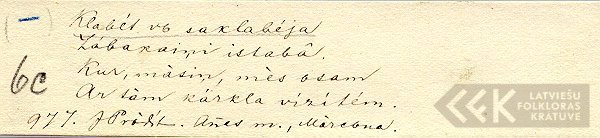 Klabēt vs saklabēja
Zābakaiņi istabā.
6c
Kur, māsiņ, mēs esam
Ar tām kārkla vīzītēm.
977. J Prēdīt. Aņes m., Mārcena.
LATVIEŠU
FOLKLORAS
KRĀTUVE